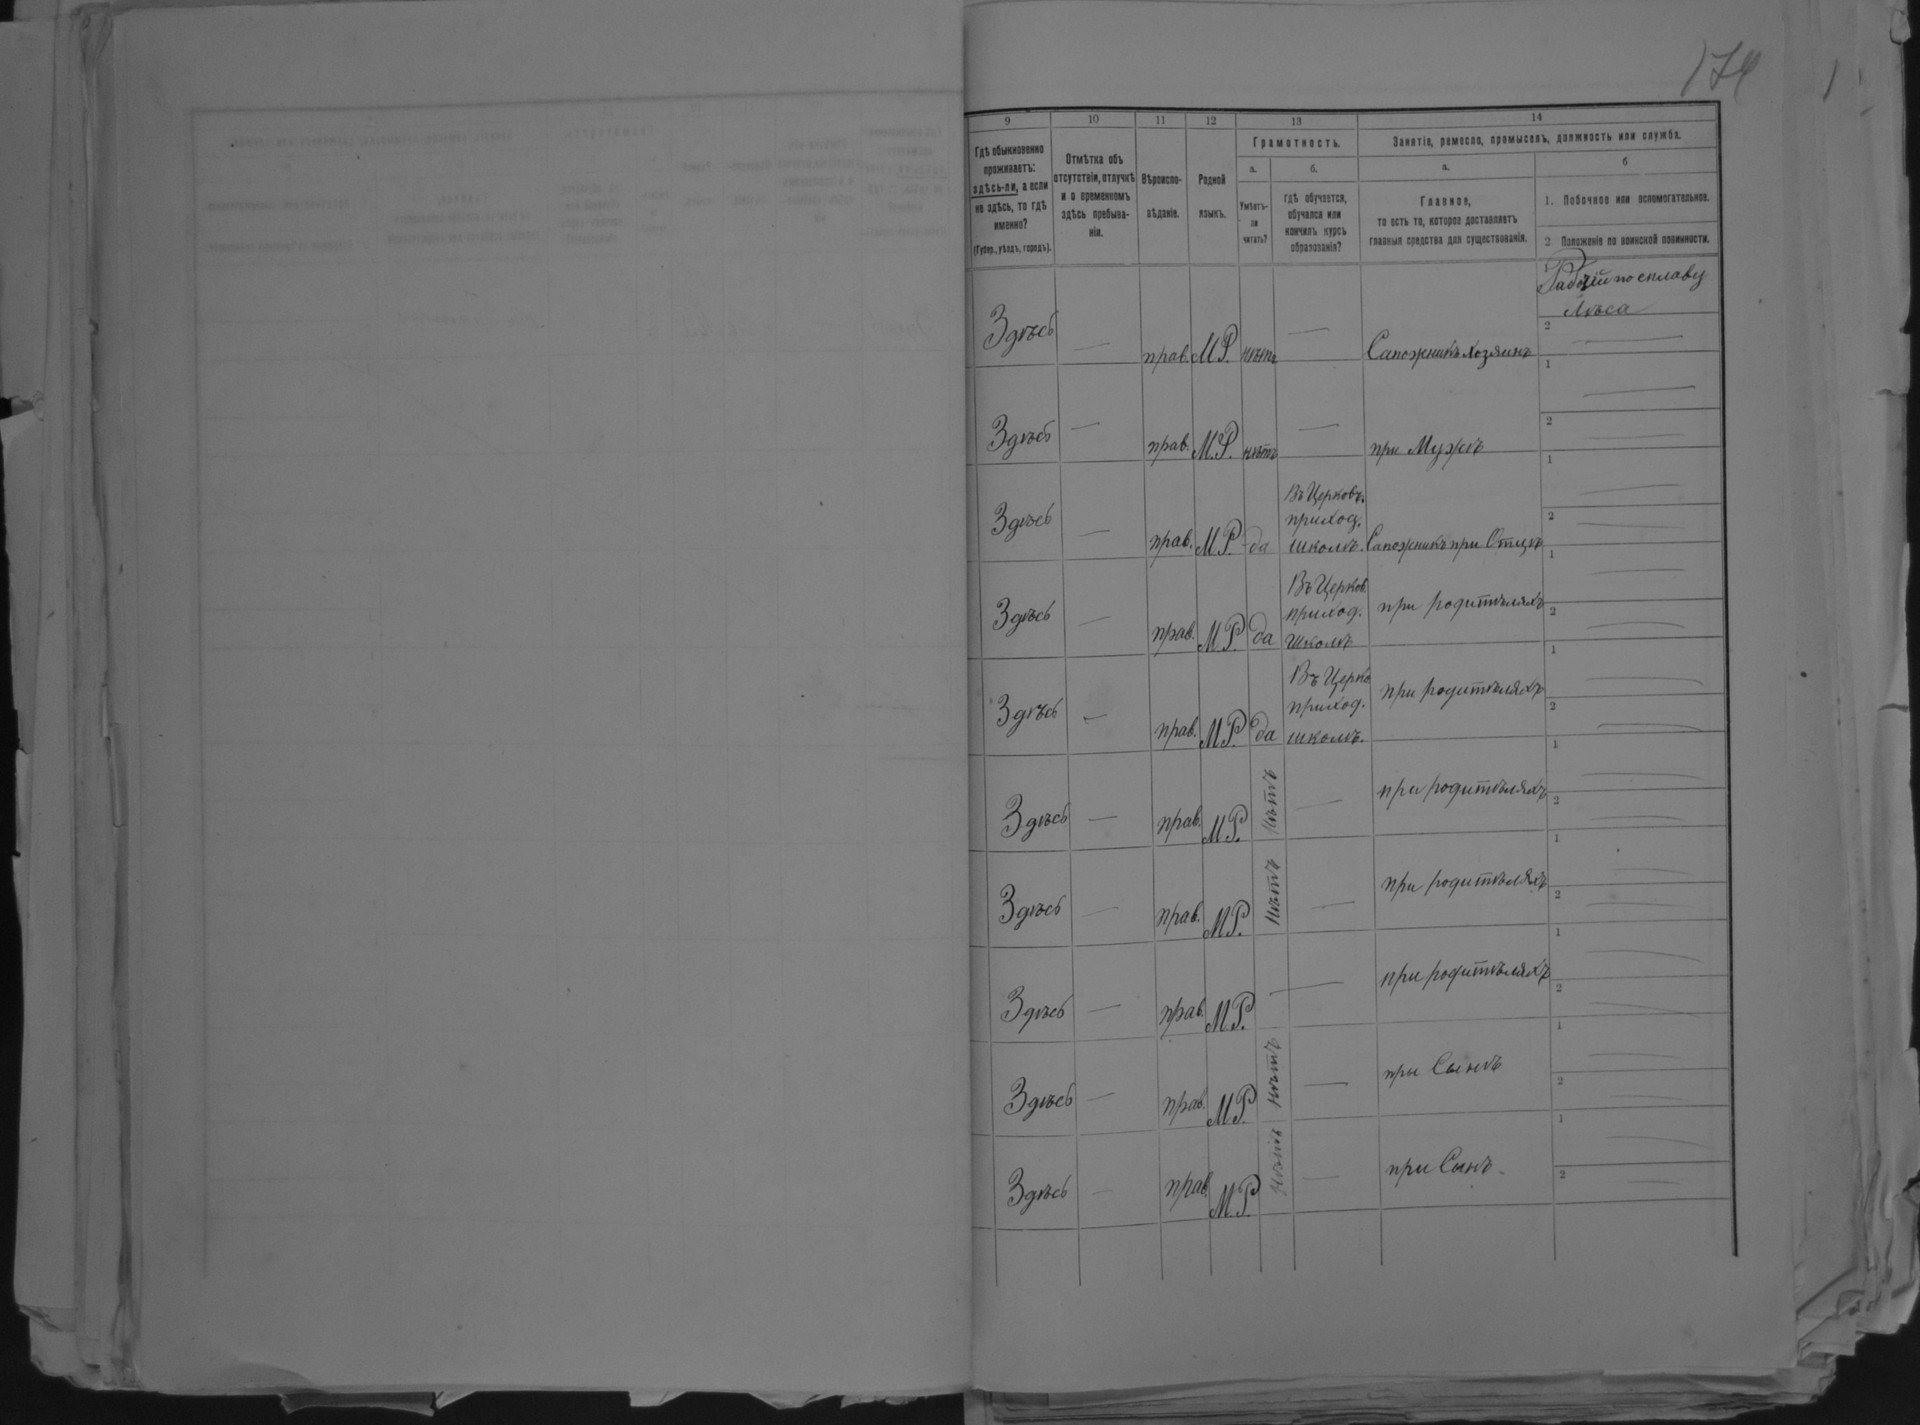 174
9 10 11 12 13 14
Гдѣ обыкновенно
проживаетъ:
здѣсь-ли, а если
не здѣсь, то гдѣ
именно?
(Губер., уѣздъ, городъ).
Отмѣтка объ
отсутствіи, отлучкѣ
и о временномъ
здѣсь пребыва-
ніи.
Вѣроиспо-
вѣданіе.
Родной
языкъ.
Грамотность.
а.
Умѣетъ-
ли
читать?
б.
гдѣ обучается,
обучался или
кончилъ курсъ
образованія?
Занятіе, ремесло, промыселъ, должность или служба.
а.
Главное,
то есть то, которое доставляетъ
главныя средства для существованія.
б
1. Побочное или вспомогательное.
2 Положеніе по воинской повинности.
1 Рабочій по сплаву
лѣса
2
Здѣсь — прав. М.Р. нѣтъ — Сапожникъ хозяинъ
1
2
Здѣсь — прав. М.Р. нѣтъ — при Мужѣ
1
Въ Церковн.
приход.
2
Здѣсь — прав. М.Р. да школѣ. Сапожникъ при Отцѣ
1
Въ Церков.
приход.
2
Здѣсь — прав. М.Р. да школѣ при родителяхъ
1
Въ Церко
приход.
2
Здѣсь — прав. М.Р. да школѣ. при родителяхъ
1
2
Здѣсь — прав. М.Р. нѣтъ — при родителяхъ
1
2
Здѣсь — прав. М.Р. нѣтъ — при родителяхъ
1
2
Здѣсь — прав. М.Р. — при родителяхъ
1
2
Здѣсь — прав. М.Р. нѣтъ — при Сынѣ
1
2
Здѣсь — прав. М.Р. нѣтъ — при Сынѣ.